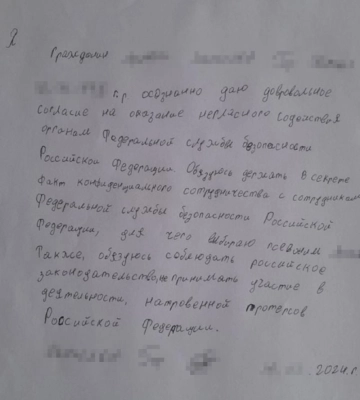 Я
Гражданин
г.р осознанно даю добровольное
согласие на оказание негласного содействия
органам Федеральной службы безопасности
Российской Федерации. Обязуюсь держать в секрете
факт конфиденциального сотрудничества с сотрудником
Федеральной службы безопасности Российской
Федерации, для чего выбираю псевдоним
Также, обязуюсь соблюдать российское
законодательство, не принимать участие в
деятельности, направенной против
Российской Федерации.
.2024 г